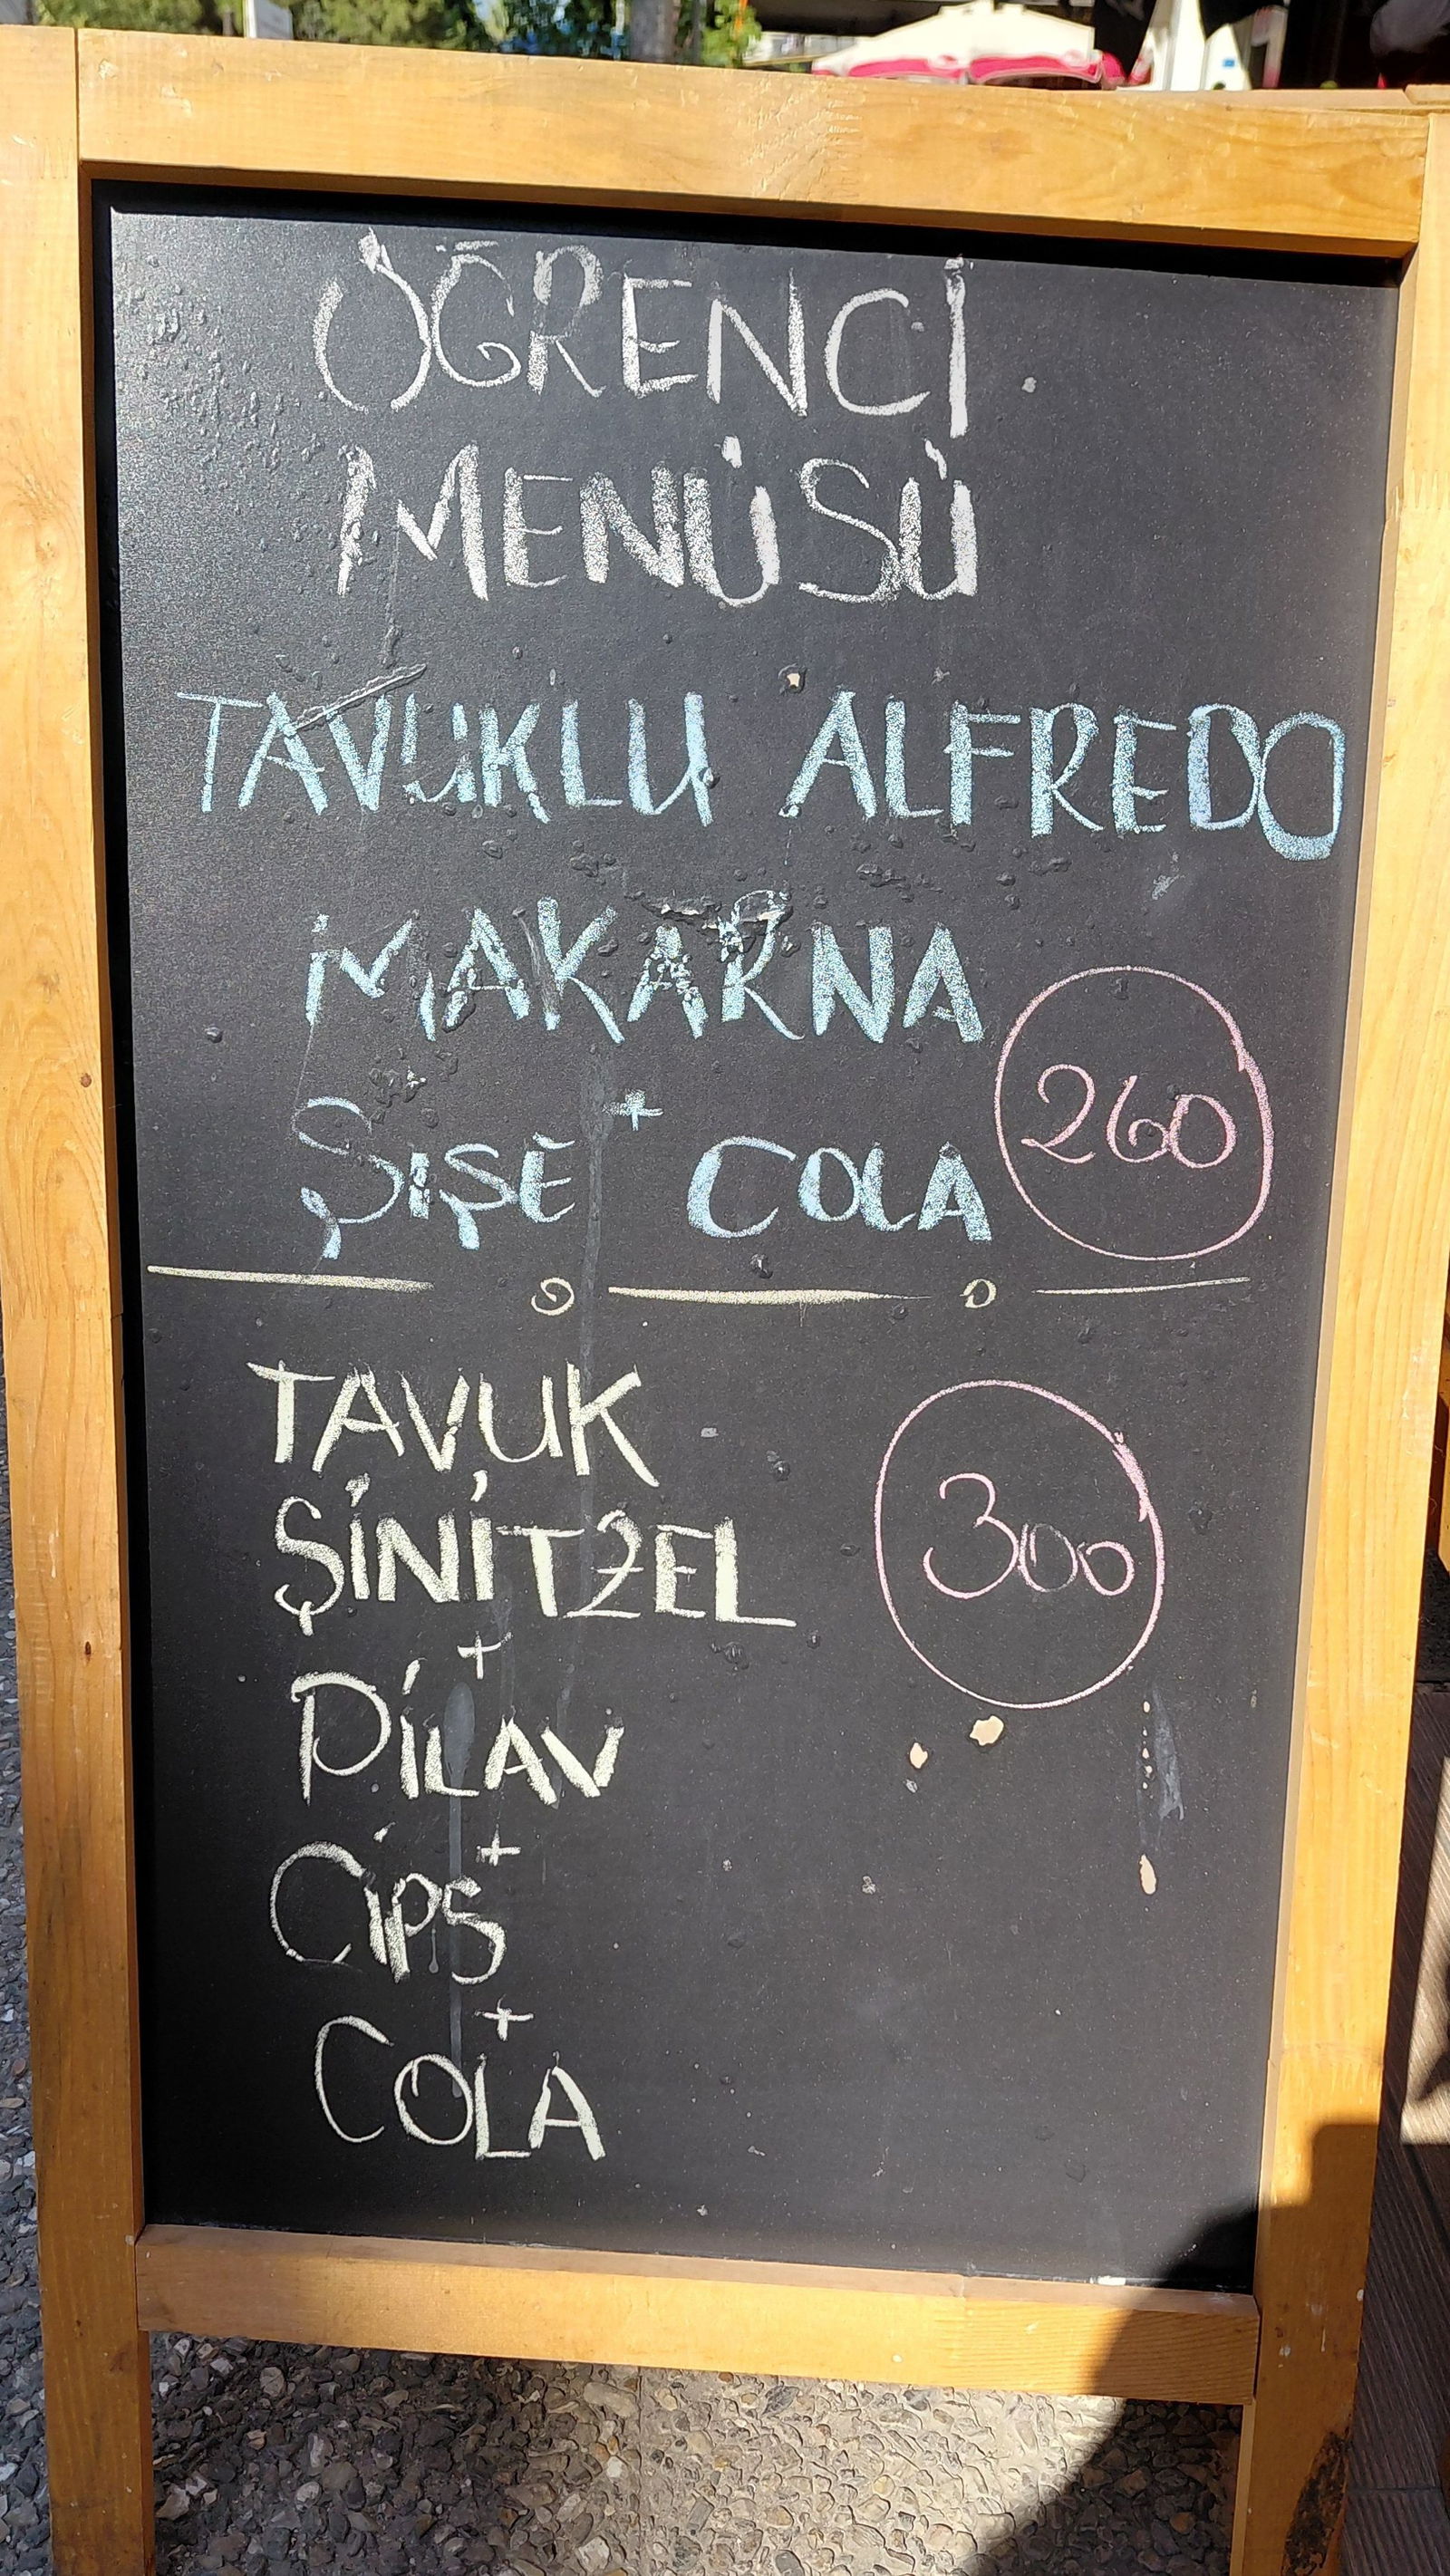 ÖĞRENCİ
MENÜSÜ
TAVUKLU ALFREDO
MAKARNA
+
ŞİŞE COLA 260
TAVUK
ŞİNİTZEL 300
+
PİLAV
+
CİPS
+
COLA